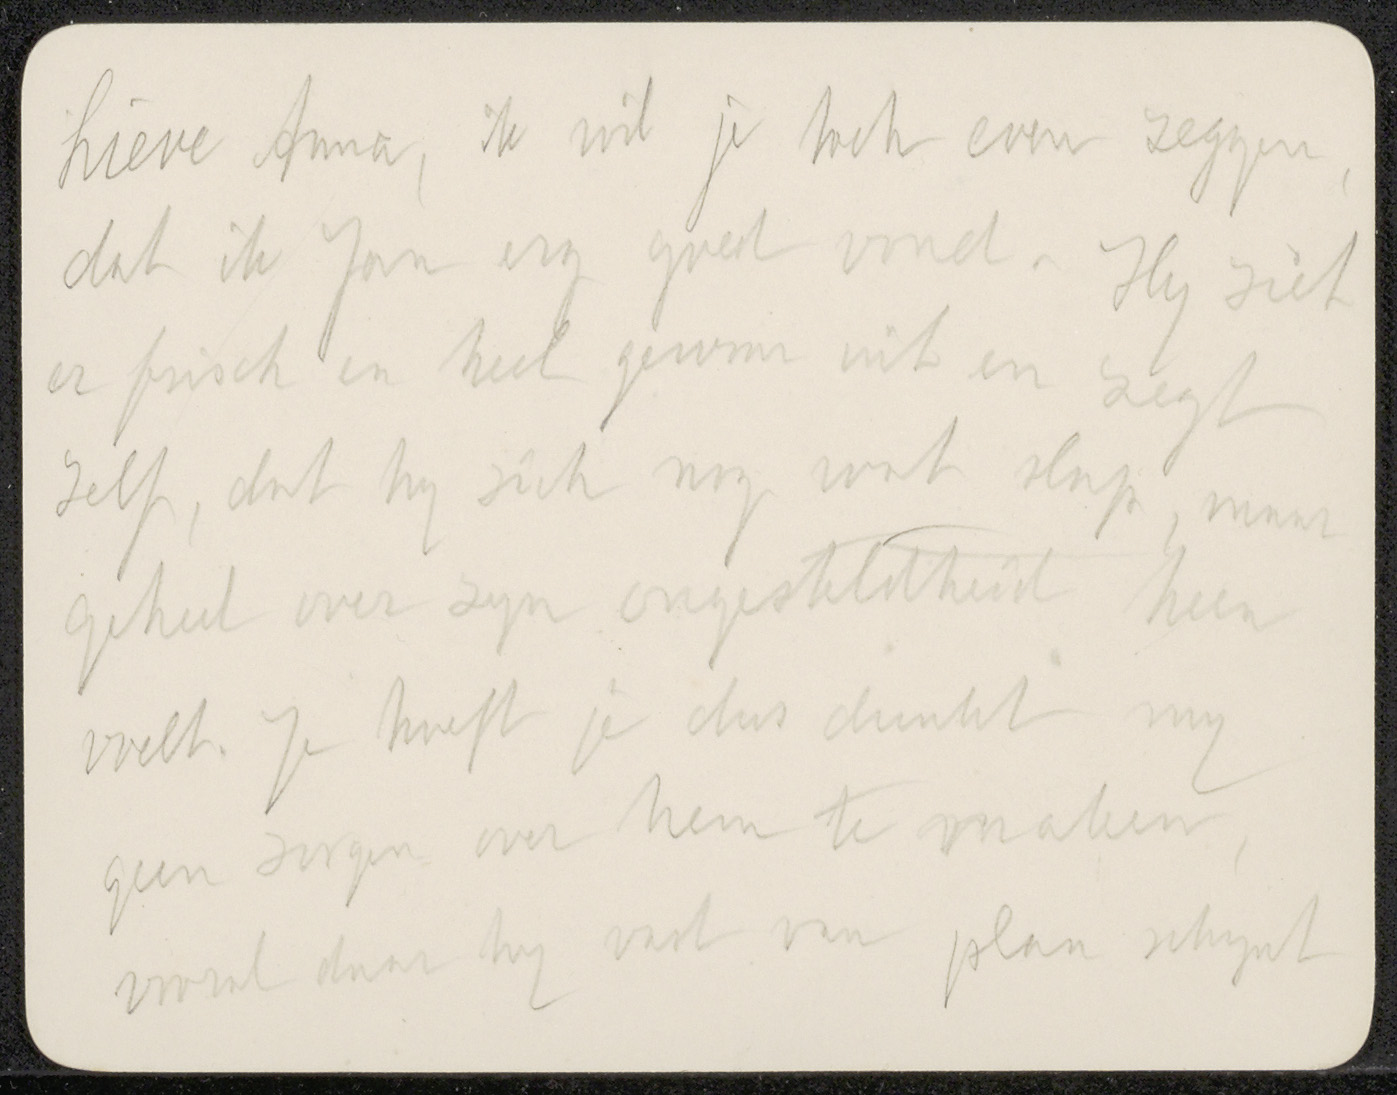 Lieve Anna, ik wil je toch even zeggen,
dat ik Jan erg goed vond. Hy ziet
er frisch en heel gewoon uit en zegt
zelf, dat hy zich nog wat slap, maar
geheel over zyn ongesteldheid heen
voelt. Je hoeft je dus dunkt my
geen zorgen over hem te maken,
vooral daar hy vast van plan schynt